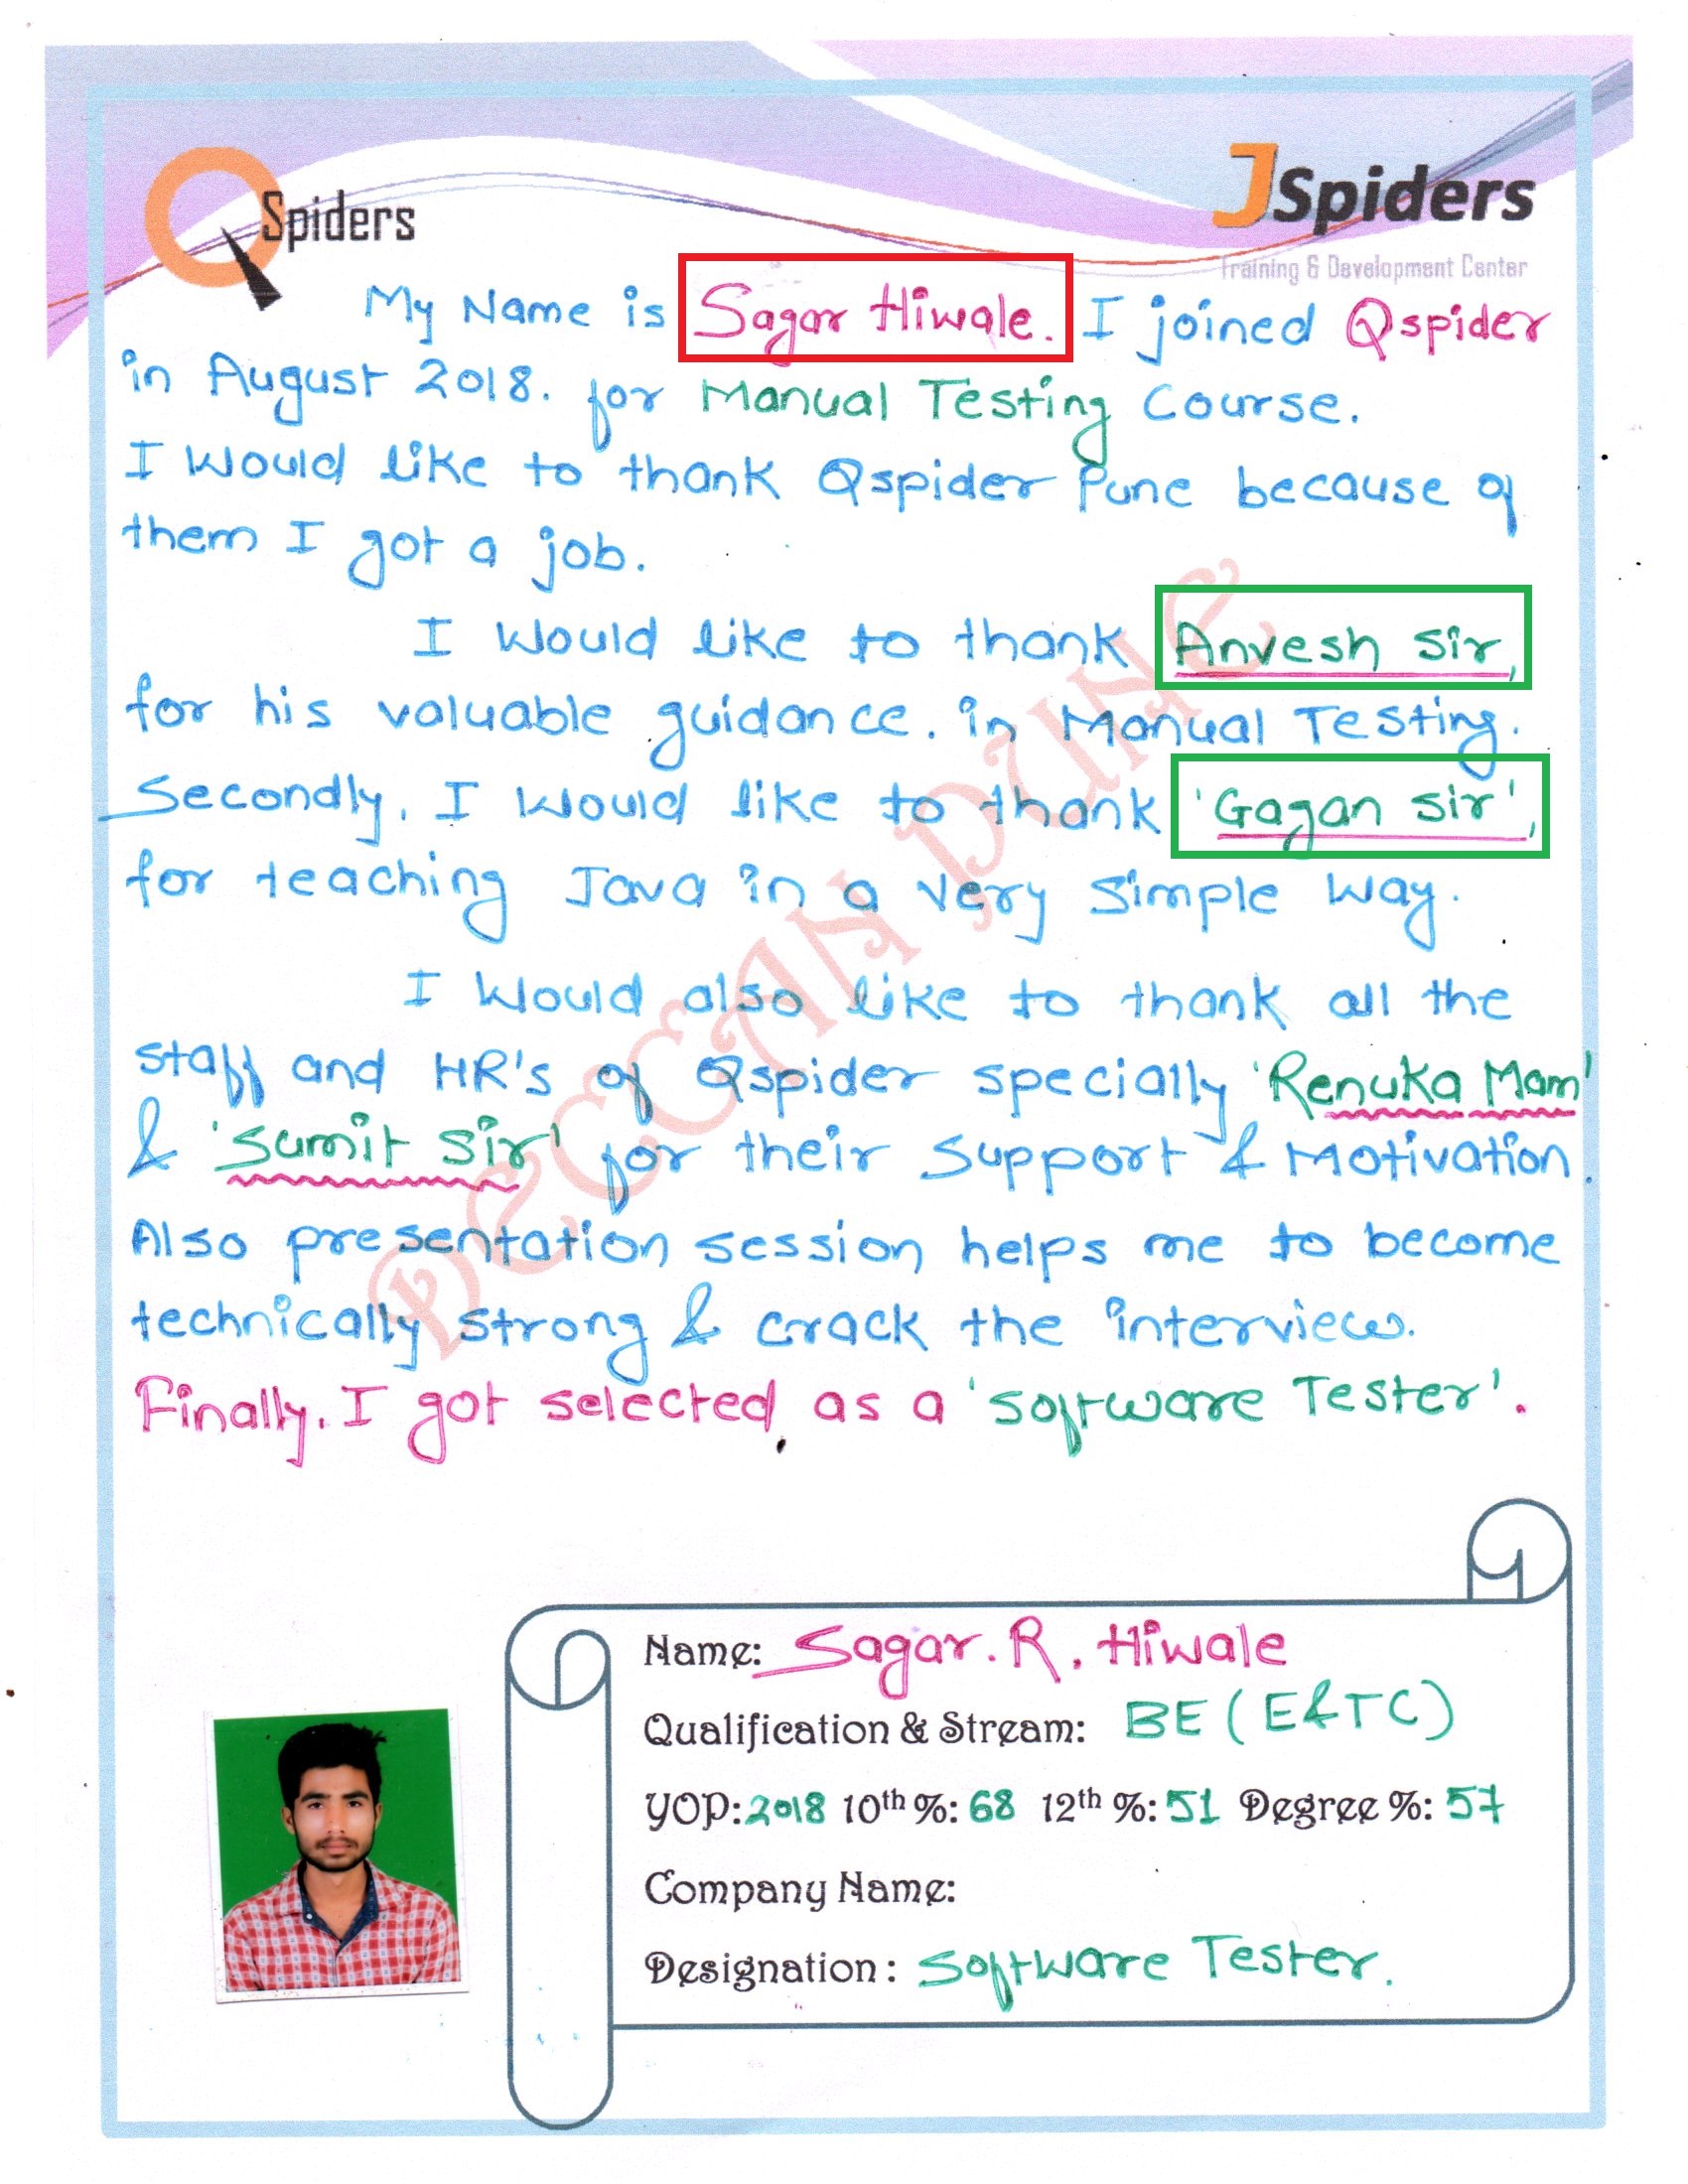 QSpiders
JSpiders
Training & Development Center
My Name is Sagar Hiwale. I joined Qspider
in August 2018. for Manual Testing Course.
I would like to thank Qspider Pune because of
them I got a job.
I would like to thank Anvesh Sir,
for his valuable guidance. in Manual Testing.
Secondly, I would like to thank 'Gagan Sir',
for teaching Java in a very simple way.
I would also like to thank all the
staff and HR's of Qspider specially 'Renuka Mam'
& 'Sumit Sir' for their support & Motivation.
Also presentation session helps me to become
technically strong & crack the interview.
Finally, I got selected as a 'Software Tester'.
DECCAN PUNE
Name: Sagar. R. Hiwale
Qualification & Stream: BE (E&TC)
YOP: 2018 10th %: 68 12th %: 51 Degree %: 57
Company Name:
Designation: Software Tester.